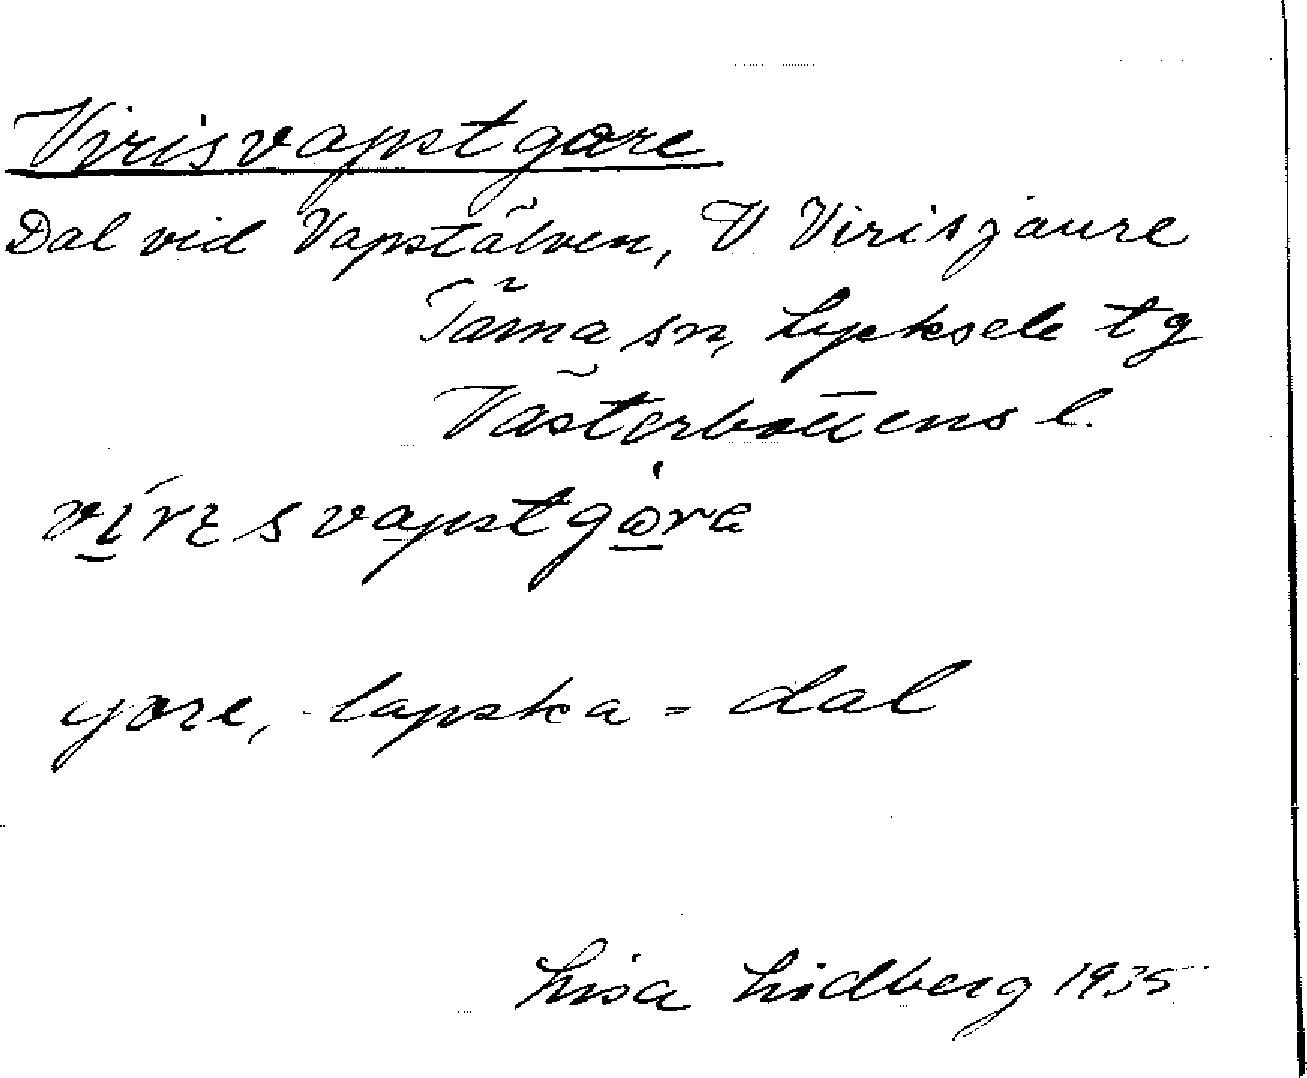 Virisvapstgore
Dal vid Vapstälven, V Virisjaure
Tärna sn, Lycksele tg
Västerbottens l.
gore, lapska = dal
Lisa Lidberg 1935